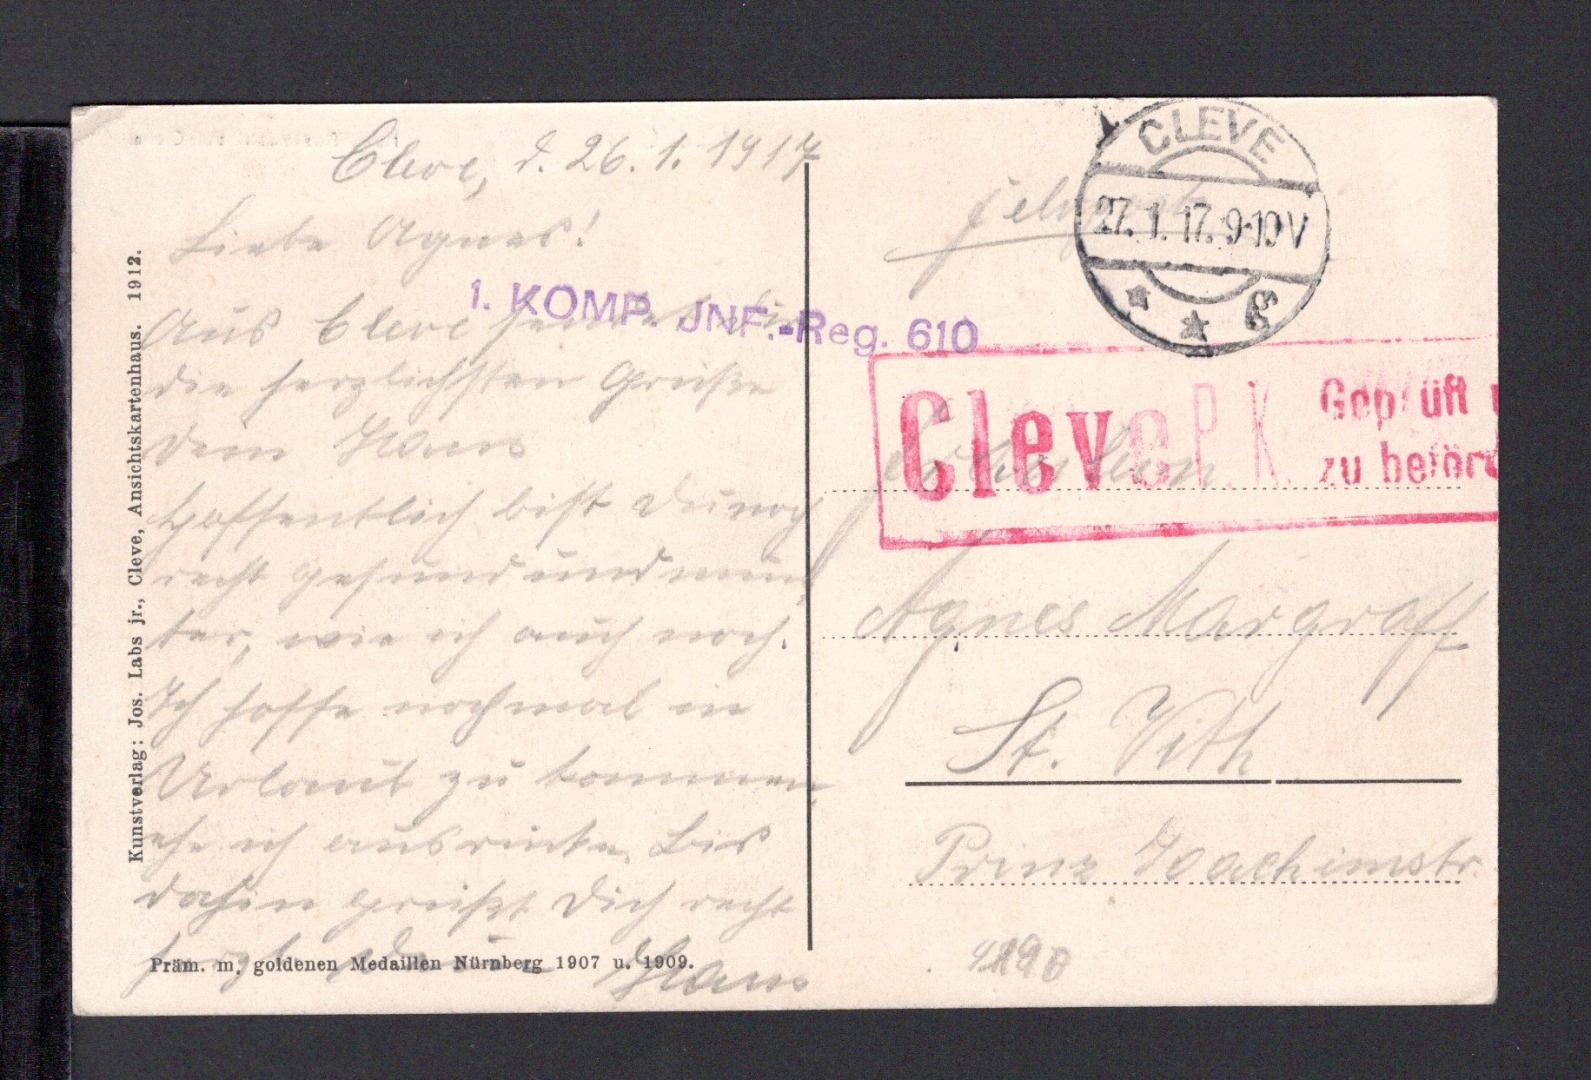 Cleve, d. 26.1.1917
Liebe Agnes!
Aus Cleve sendet Dir
die herzlichsten Grüße
Dein Hans
Hoffentlich bist Du noch
recht gesund und mun
ter, wie ich auch noch.
Ich hoffe nochmal in
Urlaub zu kommen,
ehe ich ausrücke. Bis
dahin grüßt Dich recht
herzl. Dein Hans
Kunstverlag: Jos. Labs jr., Cleve, Ansichtskartenhaus. 1912.
Präm. m. goldenen Medaillen Nürnberg 1907 u. 1909.
1. KOMP. JNF.-Reg. 610
Feldpost
CLEVE
27.1.17. 9-10V
Cleve P.K. Geprüft
zu beförd
Fräulein
Agnes Margraff
St. Vith
Prinz Joachimstr.